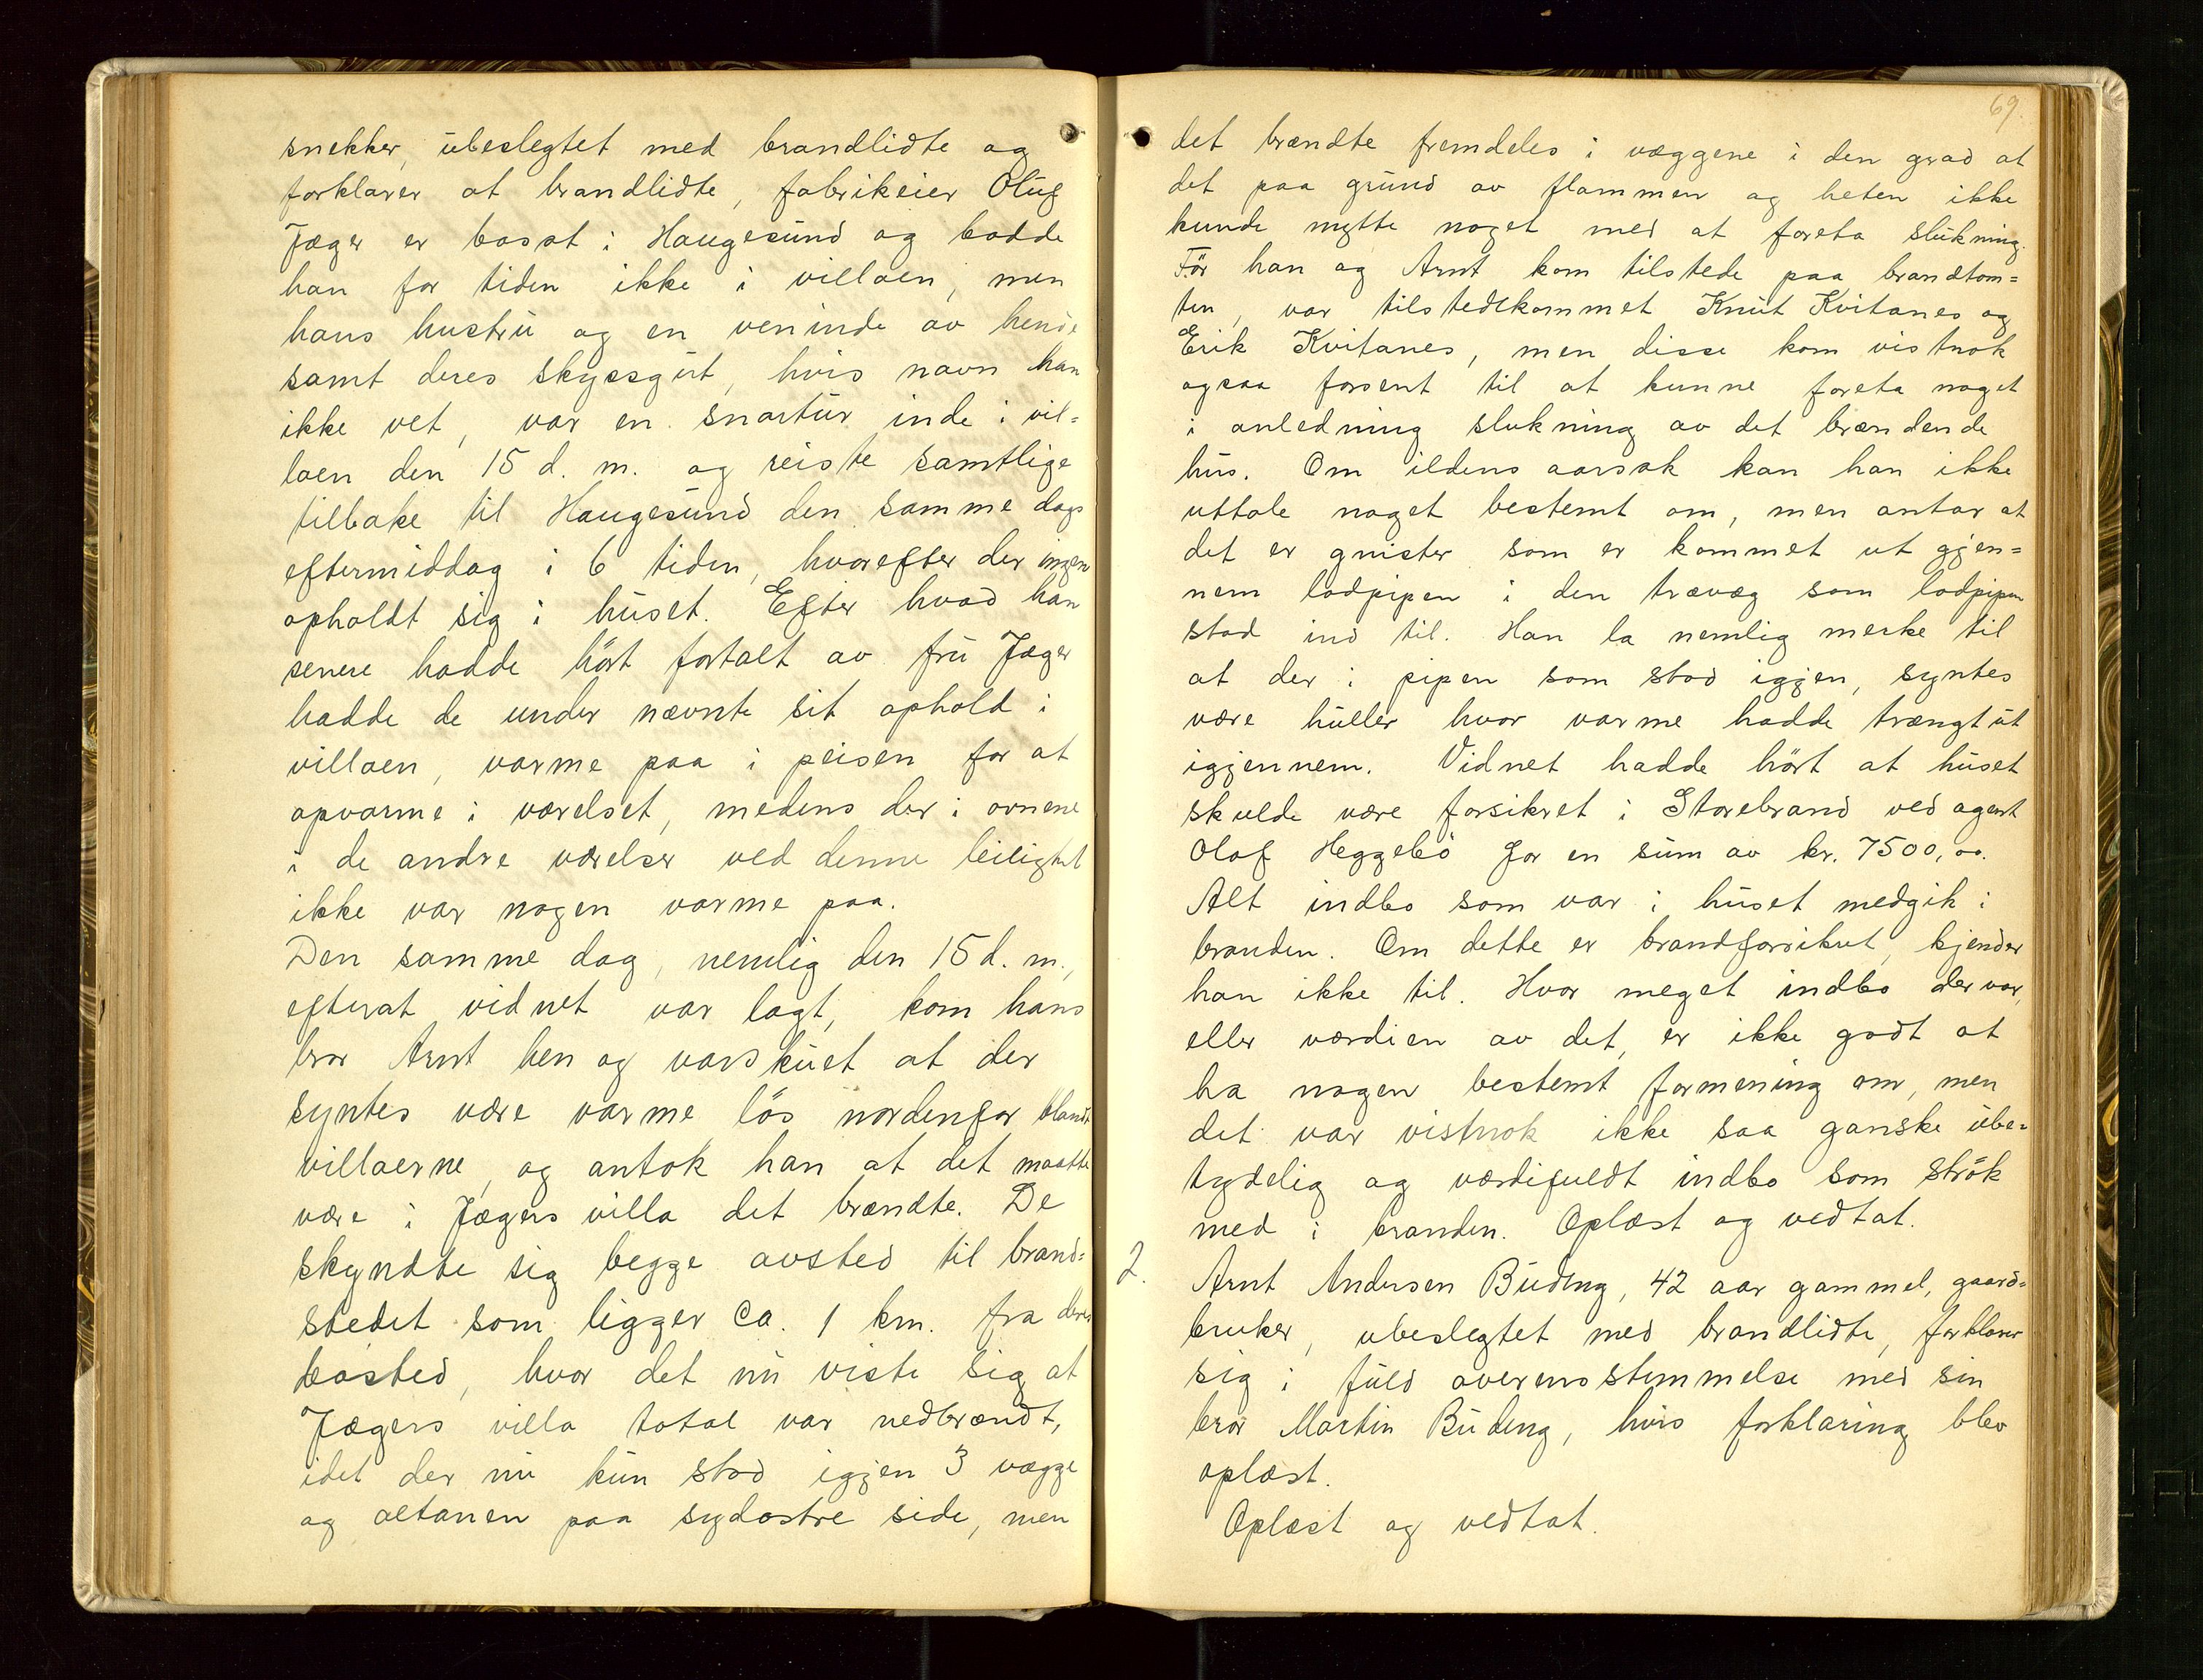 snekker, ubeslegtet med brandlidte og
forklarer at brandlidte, fabrikeier Oluf
Jæger er bosat i Haugesund og bodde
han for tiden ikke i villaen, men
hans hustru og en veninde av hende
samt deres skyssgut, hvis navn han
ikke vet, var en snartur inde i vil=
laen den 15 d. m. og reiste samtlige
tilbake til Haugesund den samme dags
eftermiddag i 6 tiden, hvorefter der ingen
opholdt sig i huset. Efter hvad han
senere hadde hört fortalt av fru Jæger
hadde de under nævnte sit ophold i
villaen, varme paa i peisen for at
opvarme i værelset, medens der i ovnene
i de andre værelser ved denne leilighet
ikke var nogen varme paa.
Den samme dag, nemlig den 15 d. m.,
efterat vidnet var lagt, kom hans
bror Arnt hen og varskuet at der
syntes være varme lös nordenfor blandt
villaerne, og antok han at det maatte
være i Jægers villa det brændte. De
skyndte sig begge avsted til brand=
stedet som ligger ca. 1 km. fra deres
bosted, hvor det nu viste sig at
Jægers villa total var nedbrændt,
idet der nu kun stod igjen 3 vægge
og altanen paa sydostre side, men
69.
det brændte fremdeles i væggene i den grad at
det paa grund av flammen og heten ikke
kunde nytte noget med at foreta slukning.
För han og Arnt kom tilstede paa brandtom=
ten, var tilstedekommet Knut Kvitanes og
Erik Kvitanes, men disse kom vistnok
ogsaa forsent til at kunne foreta noget
i anledning slukning av det brændende
hus. Om ildens aarsak kan han ikke
uttale noget bestemt om, men antar at
det er gnister som er kommet ut gjen=
nem lodpipen i den trævæg som lodpipen
stod ind til. Han la nemlig merke til
at der i pipen som stod igjen, syntes
være huller hvor varme hadde trængt ut
igjennem. Vidnet hadde hört at huset
skulde være forsikret i Storebrand ved agent
Olaf Heggebö for en sum av kr. 7500,00.
Alt indbo som var i huset medgik i
branden. Om dette er brandforsikret, kjender
han ikke til. Hvor meget indbo der var,
eller værdien av det, er ikke godt at
ha nogen bestemt formening om, men
det var vistnok ikke saa ganske ube=
tydelig og værdifuldt indbo som strök
med i branden. Oplæst og vedtat.
2. Arnt Andersen Buding, 42 aar gammel, gaard=
bruker, ubeslegtet med brandlidte, forklarer
sig i fuld overensstemmelse med sin
bror Martin Buding, hvis forklaring blev
oplæst.
Oplæst og vedtat.